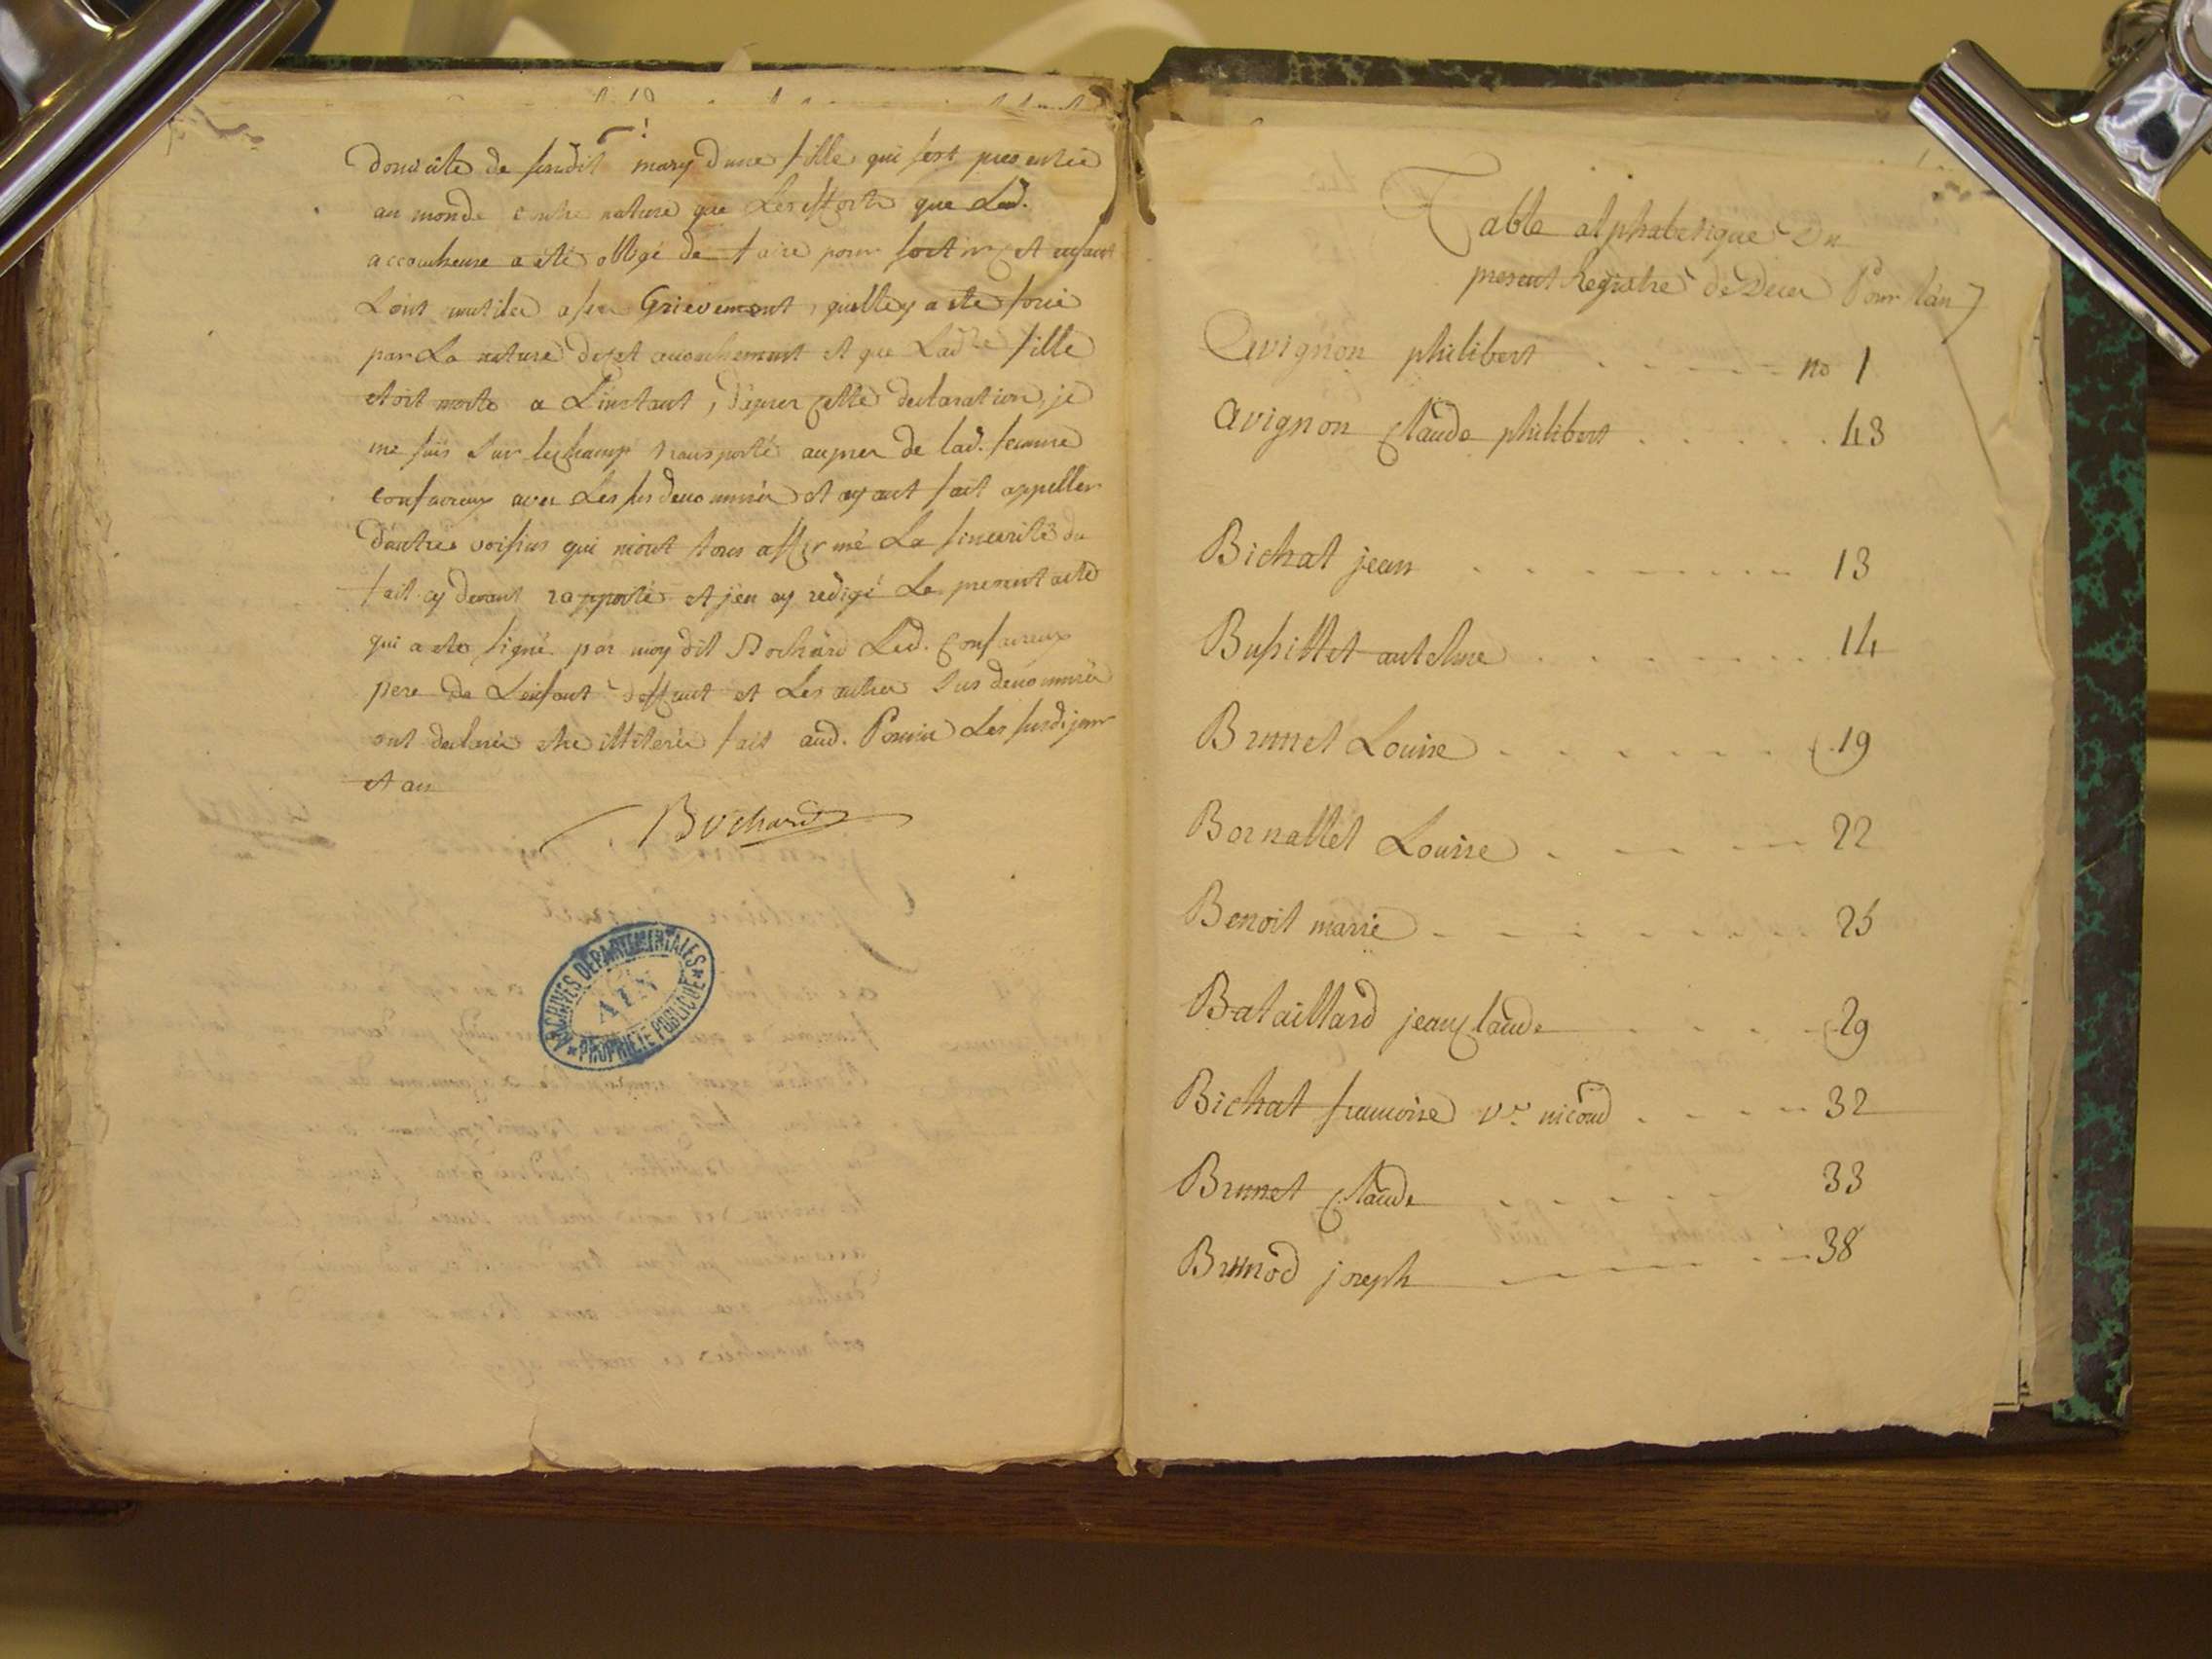 domicile de sondit mary d'une fille qui s'est presentée
au monde contre nature que les efforts que Lad.
accoucheuse a été obligé de faire pour sortir cet enfant
L'ont mutilée assez Grievement, quelle y a été forcé
par La nature de cet accouchement et que Ladte fille
etoit morte a L'instant, d'apres cette declaration, je
me suis sur lechamp transporté aupres de lad. femme
Confavreux avec Les susdenommées et ayant fait appeller
d'autres voisins qui m'ont tous affirmé La sincerité du
fait cy devant rapporté et j'en ay redigé Le present acte
qui a été signé par moy dit Bochard Led. Confavreux
pere de L'enfant deffunt et Les autres susdenommés
ont declarés etre illiterés fait aud. Les susdi jour
et an
Bochard
ARCHIVES DÉPARTEMENTALES
AIN
★ PROPRIÉTÉ PUBLIQUE ★
Table alphabetique Du
present Registre de Deces Pour l'an 7
Avignon philibert no 1
Avignon Claude philibert 43
Bichat jean 13
Bussillet antelme 14
Brunet Louise 19
Bornallet Louise 22
Benoit marie 25
Bataillard jean Claude 29
Bichat francoise ve nicoud 32
Brunet Claude 33
Brunod joseph 38